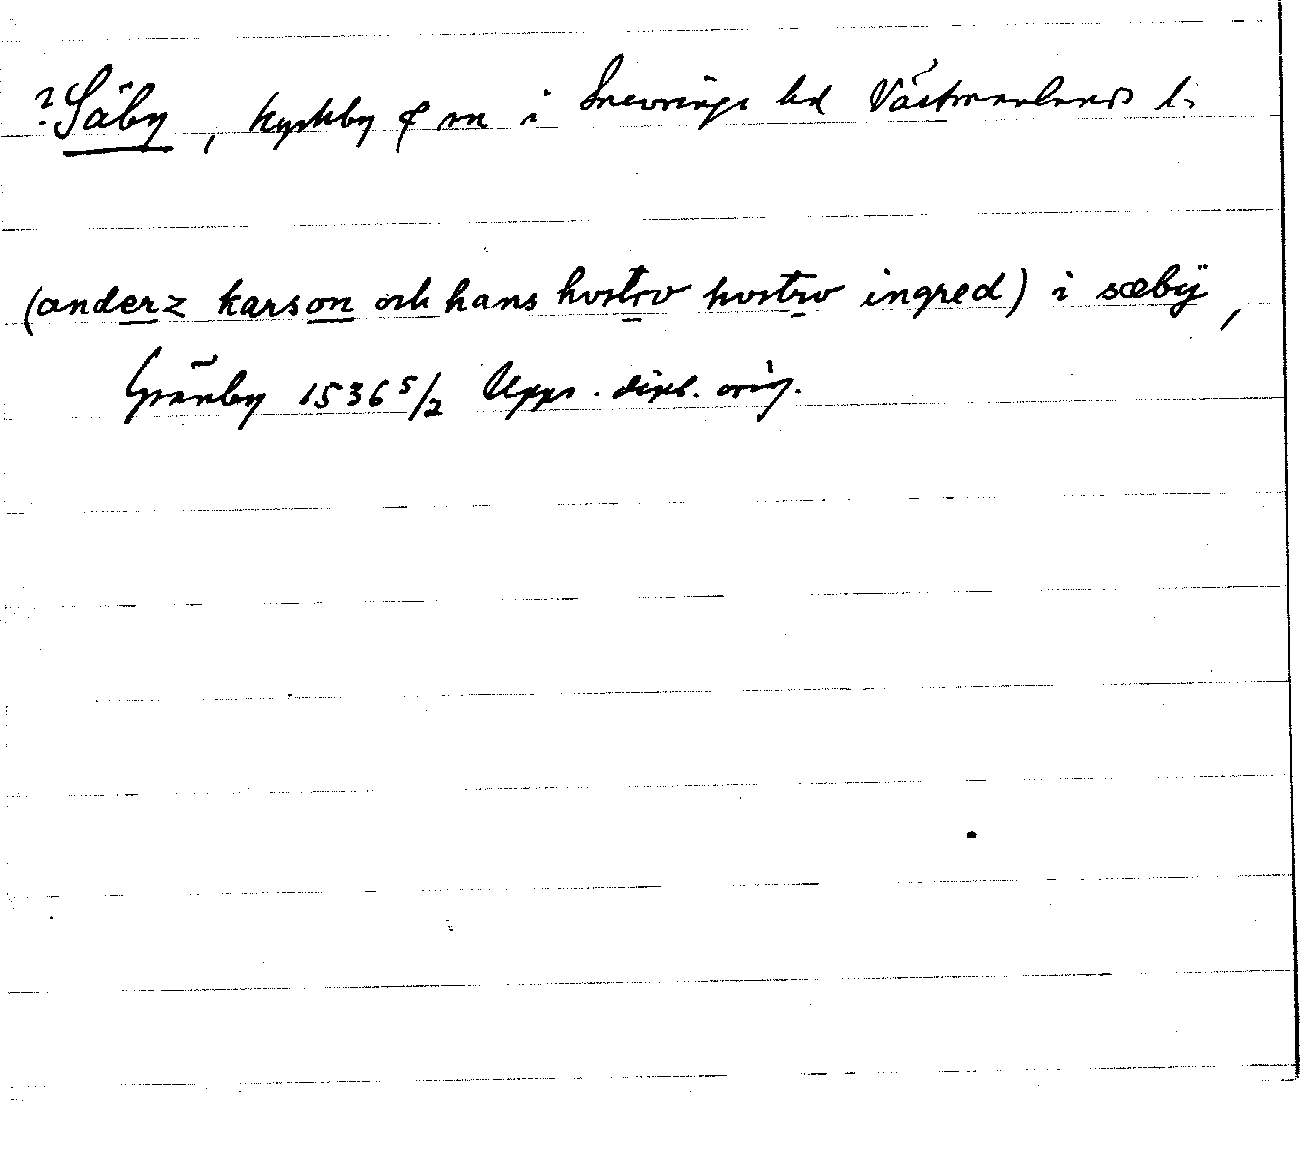 ?Säby, kyrkby o sn i Snevringe hd Västmanlands l.
(anderz karson och hans hostrv hostrv ingred) i sæbÿ,
Gränby 1536 5/2 Upps. dipl. orig.